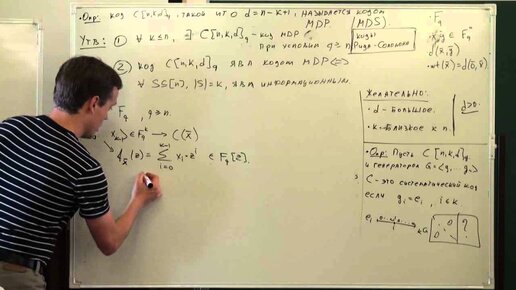 • Опр: код C[n,k,d]q, такой что d=n-k+1, называется кодом МДР. (MDS).
Утв: ① ∀ k≤n, ∃ C[n,k,d]q - код МДР
при условии q≥n
коды
Рида-Соломона
② код C[n,k,d]q явл кодом МДР ⇔
∀ S⊆[n], |S|=k, явл информационным.
Fq, q≥n.
∈ Fq^k → C(x̄)
f_x̄(z) = Σ_{i=0}^{k-1} xi·z^i ∈ Fq[z].
• Fq
x̄,ȳ ∈ Fq^n
d(x̄,ȳ)
• wt(x̄)=d(0̄,x̄).
Желательно:
• d - большое.
• k - близкое к n.
d>0
• Опр: Пусть C[n,k,d]q
и генератором G=<g1...gk>
C - это систематический код
если gi=ei, i≤k